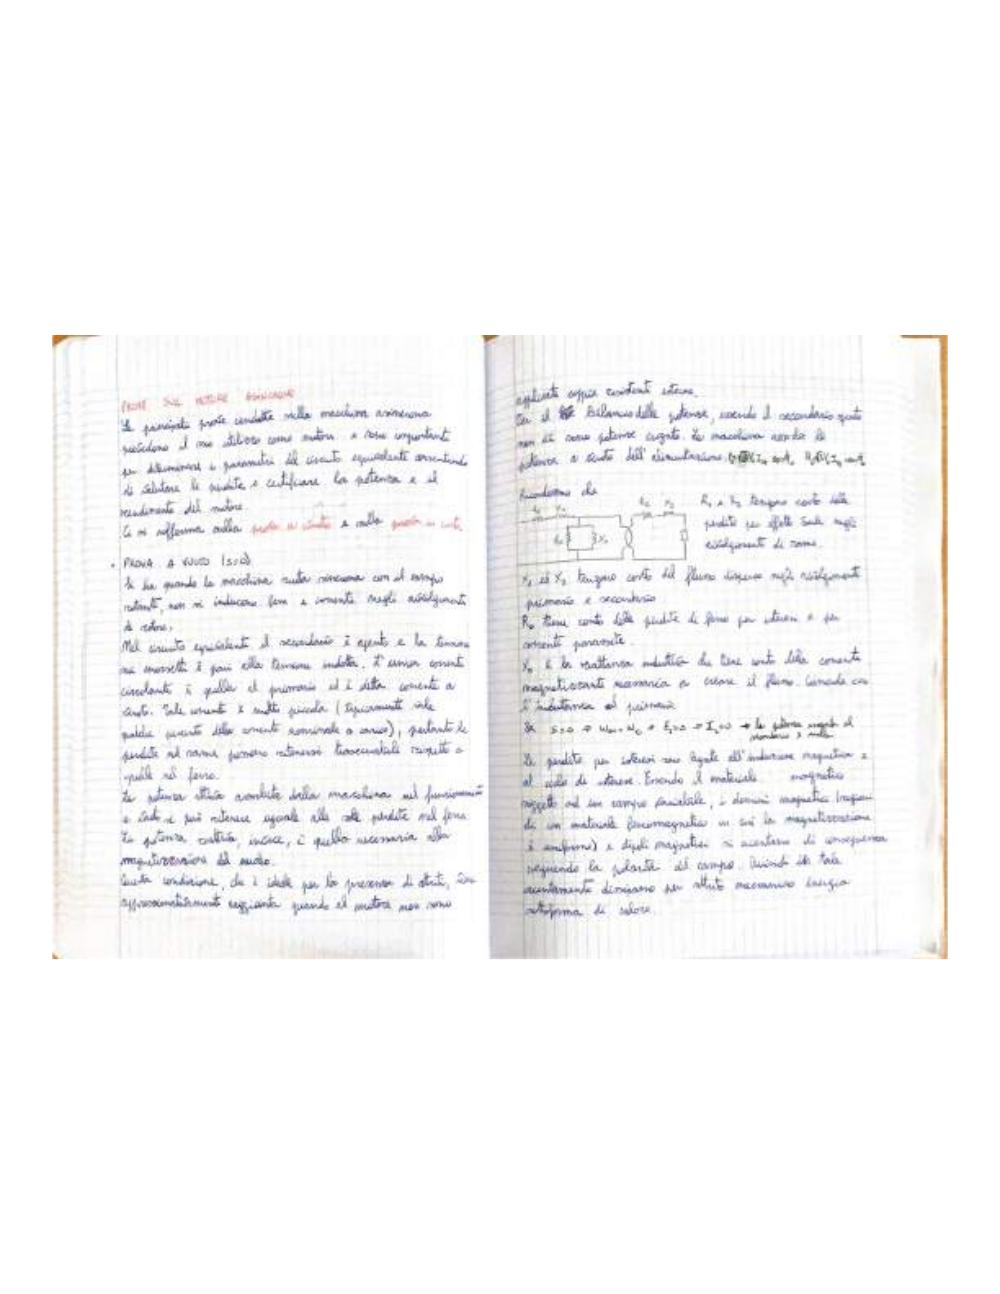 PROVE SUL MOTORE ASINCRONO
Le principali prove condotte sulla macchina asincrona
precedono il suo utilizzo come motore e sono importanti
per determinare i parametri del circuito equivalente consentendo
di valutare le perdite e certificare la potenza e il
rendimento del motore.
Ci si sofferma sulla prova a vuoto e sulla prova in corto.
• PROVA A VUOTO (s=0)
Si ha quando la macchina ruota sincrona con il campo
rotante, non si inducono fem e correnti negli avvolgimenti
di rotore.
Nel circuito equivalente il secondario è aperto e la tensione
ai morsetti è pari alla tensione indotta. L'unica corrente
circolante è quella al primario ed è detta corrente a
vuoto. Tale corrente è molto piccola (tipicamente vale
qualche percento della corrente nominale a carico), pertanto le
perdite nel rame possono ritenersi trascurabili rispetto a
quelle nel ferro.
La potenza attiva assorbita dalla macchina nel funzionamento
a vuoto si può ritenere uguale alle sole perdite nel ferro
La potenza reattiva, invece, è quella necessaria alla
magnetizzazione del nucleo.
Questa condizione, che è ideale per la presenza di attriti, viene
approssimativamente raggiunta quando al motore non sono
applicate coppie resistenti esterne.
Per il bilancio delle potenze, essendo il secondario aperto
non ci sono potenze erogate. La macchina assorbe la
potenza a vuoto dell'alimentazione.
Ricordiamo che
R₁ e R₂ tengono conto delle
perdite per effetto Joule negli
avvolgimenti di rame.
X₁ ed X₂ tengono conto del flusso disperso negli avvolgimenti
primario e secondario
R₀ tiene conto delle perdite di ferro per isteresi e per
correnti parassite.
X₀ è la reattanza induttiva che tiene conto della corrente
magnetizzante necessaria a creare il flusso. Coincide con
l'induttanza al primario
Se s=0 ⇒ ⇒ E₂=0 ⇒ I₂=0 → la potenza al
secondario è nulla
Le perdite per isteresi sono legate all'induzione magnetica e
al ciclo di isteresi. Essendo il materiale magnetico
soggetto ad un campo variabile, i domini magnetici (regioni
di un materiale ferromagnetico in cui la magnetizzazione
è uniforme) e dipoli magnetici si orientano di conseguenza
seguendo la polarità del campo. Quindi tale
orientamento dissipano per attrito meccanico energia
sottoforma di calore.